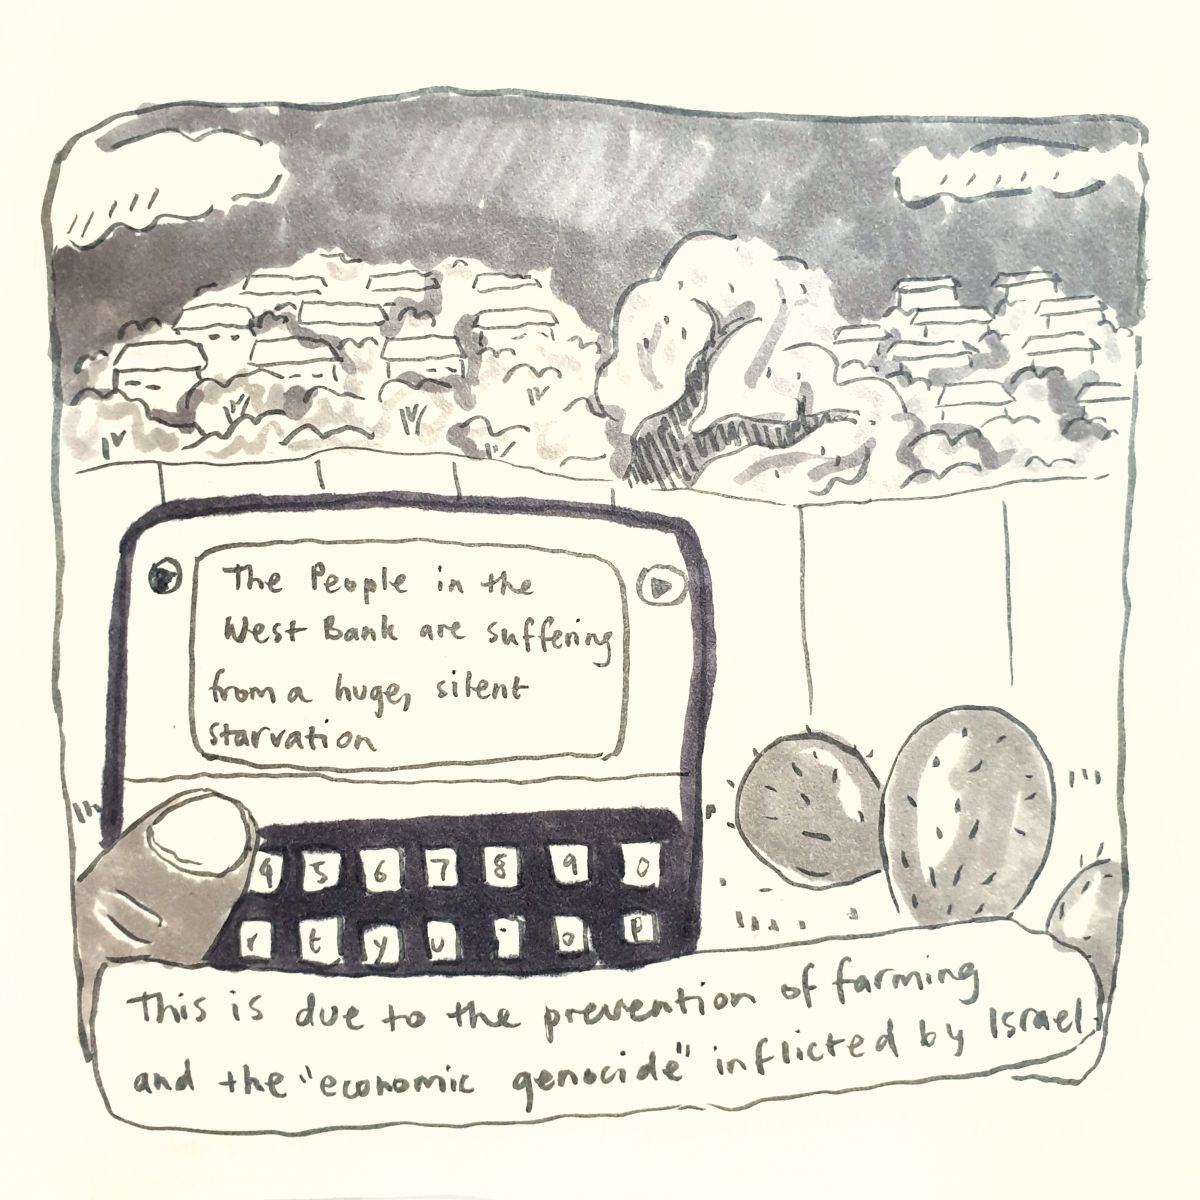 The People in the
West Bank are suffering
from a huge, silent
starvation
4 5 6 7 8 9 0
r t y u i o p
This is due to the prevention of farming
and the "economic genocide" inflicted by Israel.